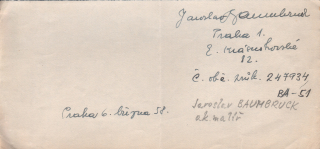 Jaroslav Baumbruck
Praha 1.
E. Krásnohorské
12.
Č. obč. průk. 247934
BA-51
Praha 6. března 58.
Jaroslav BAUMBRUCK
ak. malíř